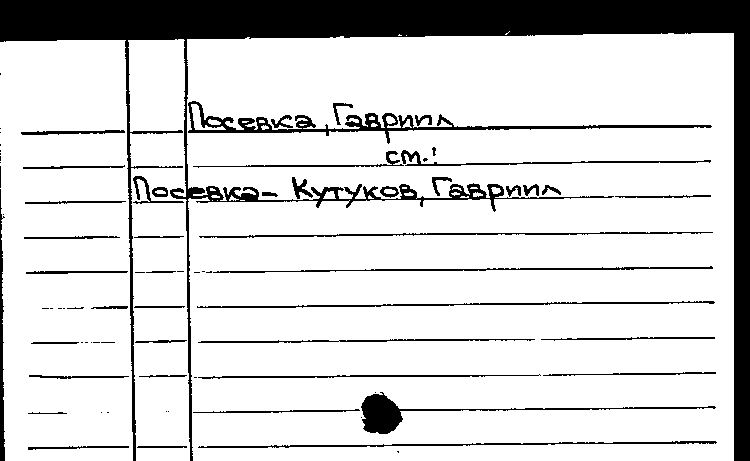 Посевка, Гавриил
см.:
Посевка- Кутуков, Гавриил